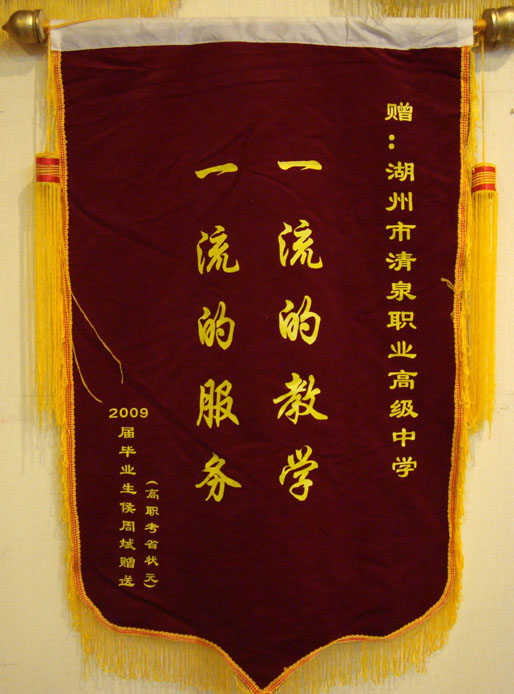 赠：湖州市清泉职业高级中学
一流的教学
一流的服务
(高职考省状元)
2009届毕业生侯周斌赠送